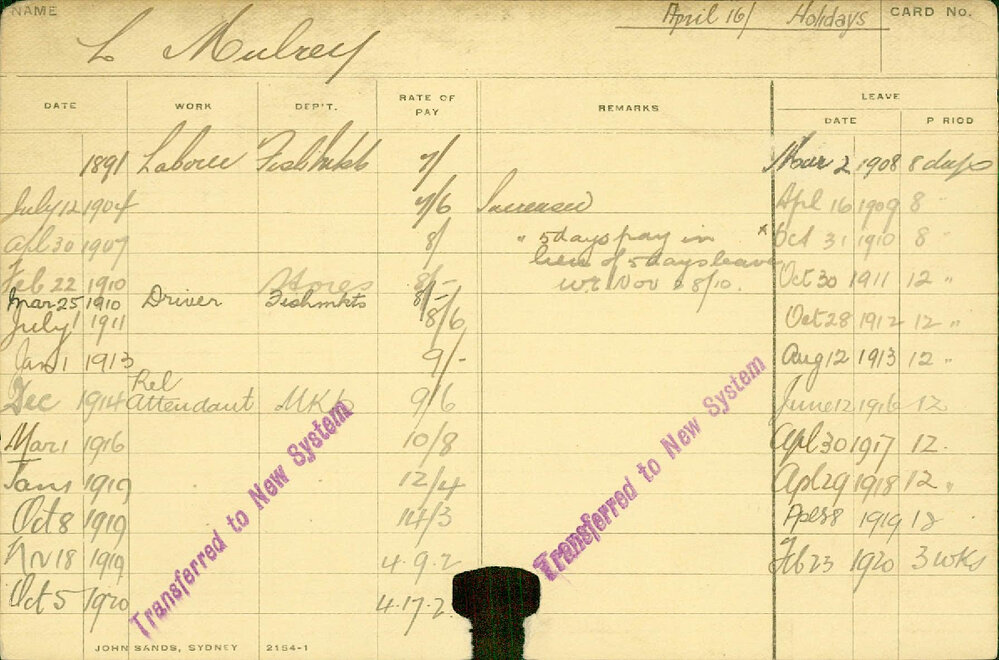 NAME
April 16/ Holidays
CARD No.
L Mulrey
DATE WORK DEP'T. RATE OF PAY REMARKS LEAVE
DATE P RIOD
1891 Labour Fishmkts 7/ Mar 2 1908 8 days
July 12 1904 7/6 Increased Apl 16 1909 8 "
Apl 30 1907 8/ " 5 days pay in * Oct 31 1910 8 "
lieu of 5 days leave
Feb 22 1910 8/- Nov 28/10. Oct 30 1911 12 "
Mar 25 1910 Driver Fishmkts 8/-
July 1 1911 8/6 Oct 28 1912 12 "
Jan 1 1913 9/- Aug 12 1913 12 "
Rel
Dec 1914 Attendant MKts 9/6 June 12 1916 12
Mar 1 1916 10/8 Apl 30 1917 12.
Jan 1 1919 12/4 Apl 29 1918 12 "
Oct 8 1919 14/3 1919
Nv 18 1919 4.9.2 Feb 23 1920 3 wks
Oct 5 1920 4.17.2
Transferred to New System
Transferred to New System
JOHN SANDS, SYDNEY 2154-1